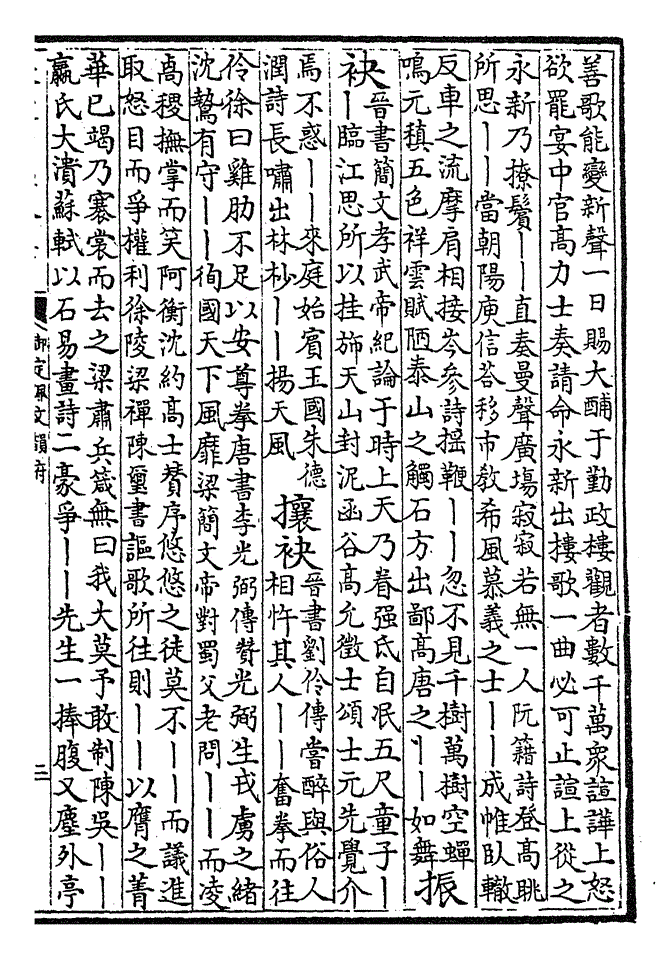 善歌能變新聲一日賜大酺于勤政樓觀者數千萬衆諠譁上怒
欲罷宴中官高力士奏請命永新出樓歌一曲必可止諠上從之
永新乃撩鬢丨丨直奏曼聲廣塲寂寂若無一人阮籍詩登高眺
所思丨丨當朝陽庾信荅移市敎希風慕義之士丨丨成帷臥轍
反車之流摩肩相接岑參詩揺鞭丨丨忽不見千樹萬樹空蟬
鳴元稹五色祥雲賦陋泰山之觸石方出鄙高唐之丨丨如舞
振
袂
晉書簡文孝武帝紀論于時上天乃眷强氐自泯五尺童子丨
丨臨江思所以挂斾天山封泥函谷高允徵士頌士元先覺介
焉不惑丨丨來庭始賓王國朱德
潤詩長嘯出林杪丨丨揚天風
攘袂
晉書劉伶傳嘗醉與俗人
相忤其人丨丨奮拳而往
伶徐曰雞肋不足以安尊拳唐書李光弼傳贊光弼生戎虜之緒
沈鷙有守丨丨徇國天下風靡梁簡文帝對蜀父老問丨丨而凌
高稷撫掌而笑阿衡沈約高士贊序悠悠之徒莫不丨丨而議進
取怒目而爭權利徐陵梁禪陳璽書謳歌所往則丨丨以膺之菁
華已竭乃褰裳而去之梁肅兵箴無曰我大莫予敢制陳吳丨丨
嬴氏大潰蘇軾以石易畫詩二豪爭丨丨先生一捧腹又塵外亭
御定佩文韻府
二